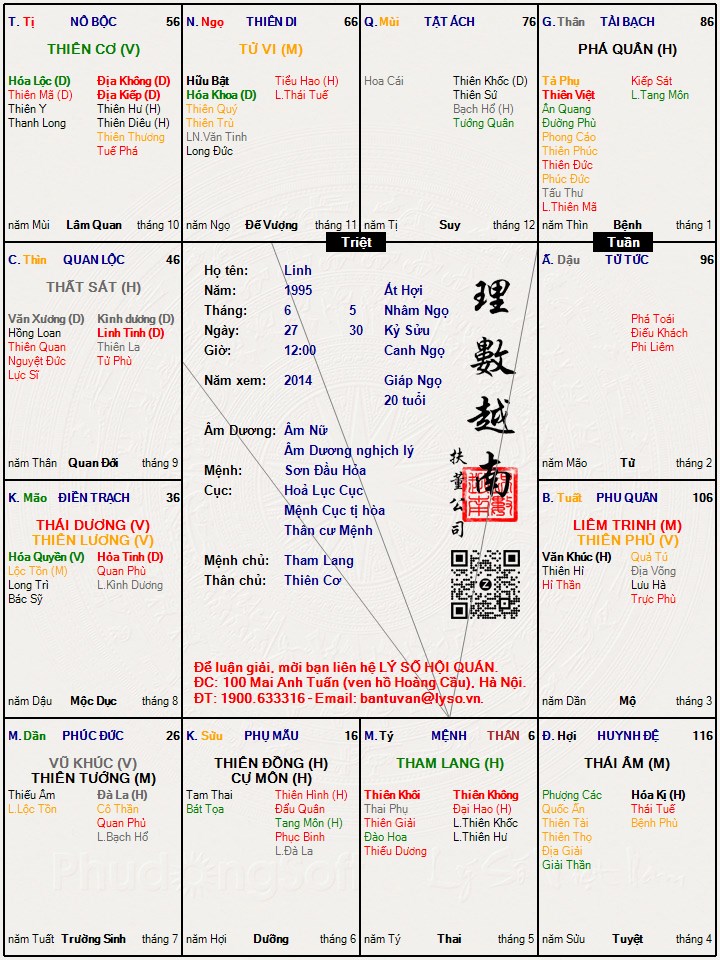 T. Tị NÔ BỘC 56
THIÊN CƠ (V)
Hóa Lộc (D) Địa Không (D)
Thiên Mã (D) Địa Kiếp (D)
Thiên Y Thiên Hư (H)
Thanh Long Thiên Diêu (H)
Thiên Thương
Tuế Phá
năm Mùi Lâm Quan tháng 10
N. Ngọ THIÊN DI 66
TỬ VI (M)
Hữu Bật Tiểu Hao (H)
Hóa Khoa (D) L.Thái Tuế
Thiên Quý
Thiên Trù
LN.Văn Tinh
Long Đức
năm Ngọ Đế Vượng tháng 11
Q. Mùi TẬT ÁCH 76
Hoa Cái Thiên Khốc (D)
Thiên Sứ
Bạch Hổ (H)
Tướng Quân
năm Tị Suy tháng 12
G. Thân TÀI BẠCH 86
PHÁ QUÂN (H)
Tả Phụ Kiếp Sát
Thiên Việt L.Tang Môn
Ân Quang
Đường Phù
Phong Cáo
Thiên Phúc
Thiên Đức
Phúc Đức
Tấu Thư
L.Thiên Mã
năm Thìn Bệnh tháng 1
Triệt
Tuần
C. Thìn QUAN LỘC 46
THẤT SÁT (H)
Văn Xương (D) Kình dương (D)
Hồng Loan Linh Tinh (D)
Thiên Quan Thiên La
Nguyệt Đức Tử Phù
Lực Sĩ
năm Thân Quan Đới tháng 9
Họ tên: Linh
Năm: 1995 Ất Hợi
Tháng: 6 5 Nhâm Ngọ
Ngày: 27 30 Kỷ Sửu
Giờ: 12:00 Canh Ngọ
Năm xem: 2014 Giáp Ngọ
20 tuổi
Âm Dương: Âm Nữ
Âm Dương nghịch lý
Mệnh: Sơn Đầu Hỏa
Cục: Hoả Lục Cục
Mệnh Cục tị hòa
Thân cư Mệnh
Mệnh chủ: Tham Lang
Thân chủ: Thiên Cơ
理數越南
扶董公司
Để luận giải, mời bạn liên hệ LÝ SỐ HỘI QUÁN.
ĐC: 100 Mai Anh Tuấn (ven hồ Hoàng Cầu), Hà Nội.
ĐT: 1900.633316 - Email: bantuvan@lyso.vn.
Ấ. Dậu TỬ TỨC 96
Phá Toái
Điếu Khách
Phi Liêm
năm Mão Tử tháng 2
K. Mão ĐIỀN TRẠCH 36
THÁI DƯƠNG (V)
THIÊN LƯƠNG (V)
Hóa Quyền (V) Hỏa Tinh (D)
Lộc Tồn (M) Quan Phù
Long Trì L.Kình Dương
Bác Sỹ
năm Dậu Mộc Dục tháng 8
B. Tuất PHU QUÂN 106
LIÊM TRINH (M)
THIÊN PHỦ (V)
Văn Khúc (H) Quả Tú
Thiên Hỉ Địa Võng
Hỉ Thần Lưu Hà
Trực Phù
năm Dần Mộ tháng 3
M. Dần PHÚC ĐỨC 26
VŨ KHÚC (V)
THIÊN TƯỚNG (M)
Thiếu Âm Đà La (H)
L.Lộc Tồn Cô Thần
Quan Phủ
L.Bạch Hổ
năm Tuất Trường Sinh tháng 7
K. Sửu PHỤ MẪU 16
THIÊN ĐỒNG (H)
CỰ MÔN (H)
Tam Thai Thiên Hình (H)
Bát Tọa Đẩu Quân
Tang Môn (H)
Phục Binh
L.Đà La
năm Hợi Dưỡng tháng 6
M. Tý MỆNH THÂN 6
THAM LANG (H)
Thiên Khôi Thiên Không
Thai Phụ Đại Hao (H)
Thiên Giải L.Thiên Khốc
Đào Hoa L.Thiên Hư
Thiếu Dương
năm Tý Thai tháng 5
Đ. Hợi HUYNH ĐỆ 116
THÁI ÂM (M)
Phượng Các Hóa Kị (H)
Quốc Ấn Thái Tuế
Thiên Tài Bệnh Phù
Thiên Thọ
Địa Giải
Giải Thần
năm Sửu Tuyệt tháng 4